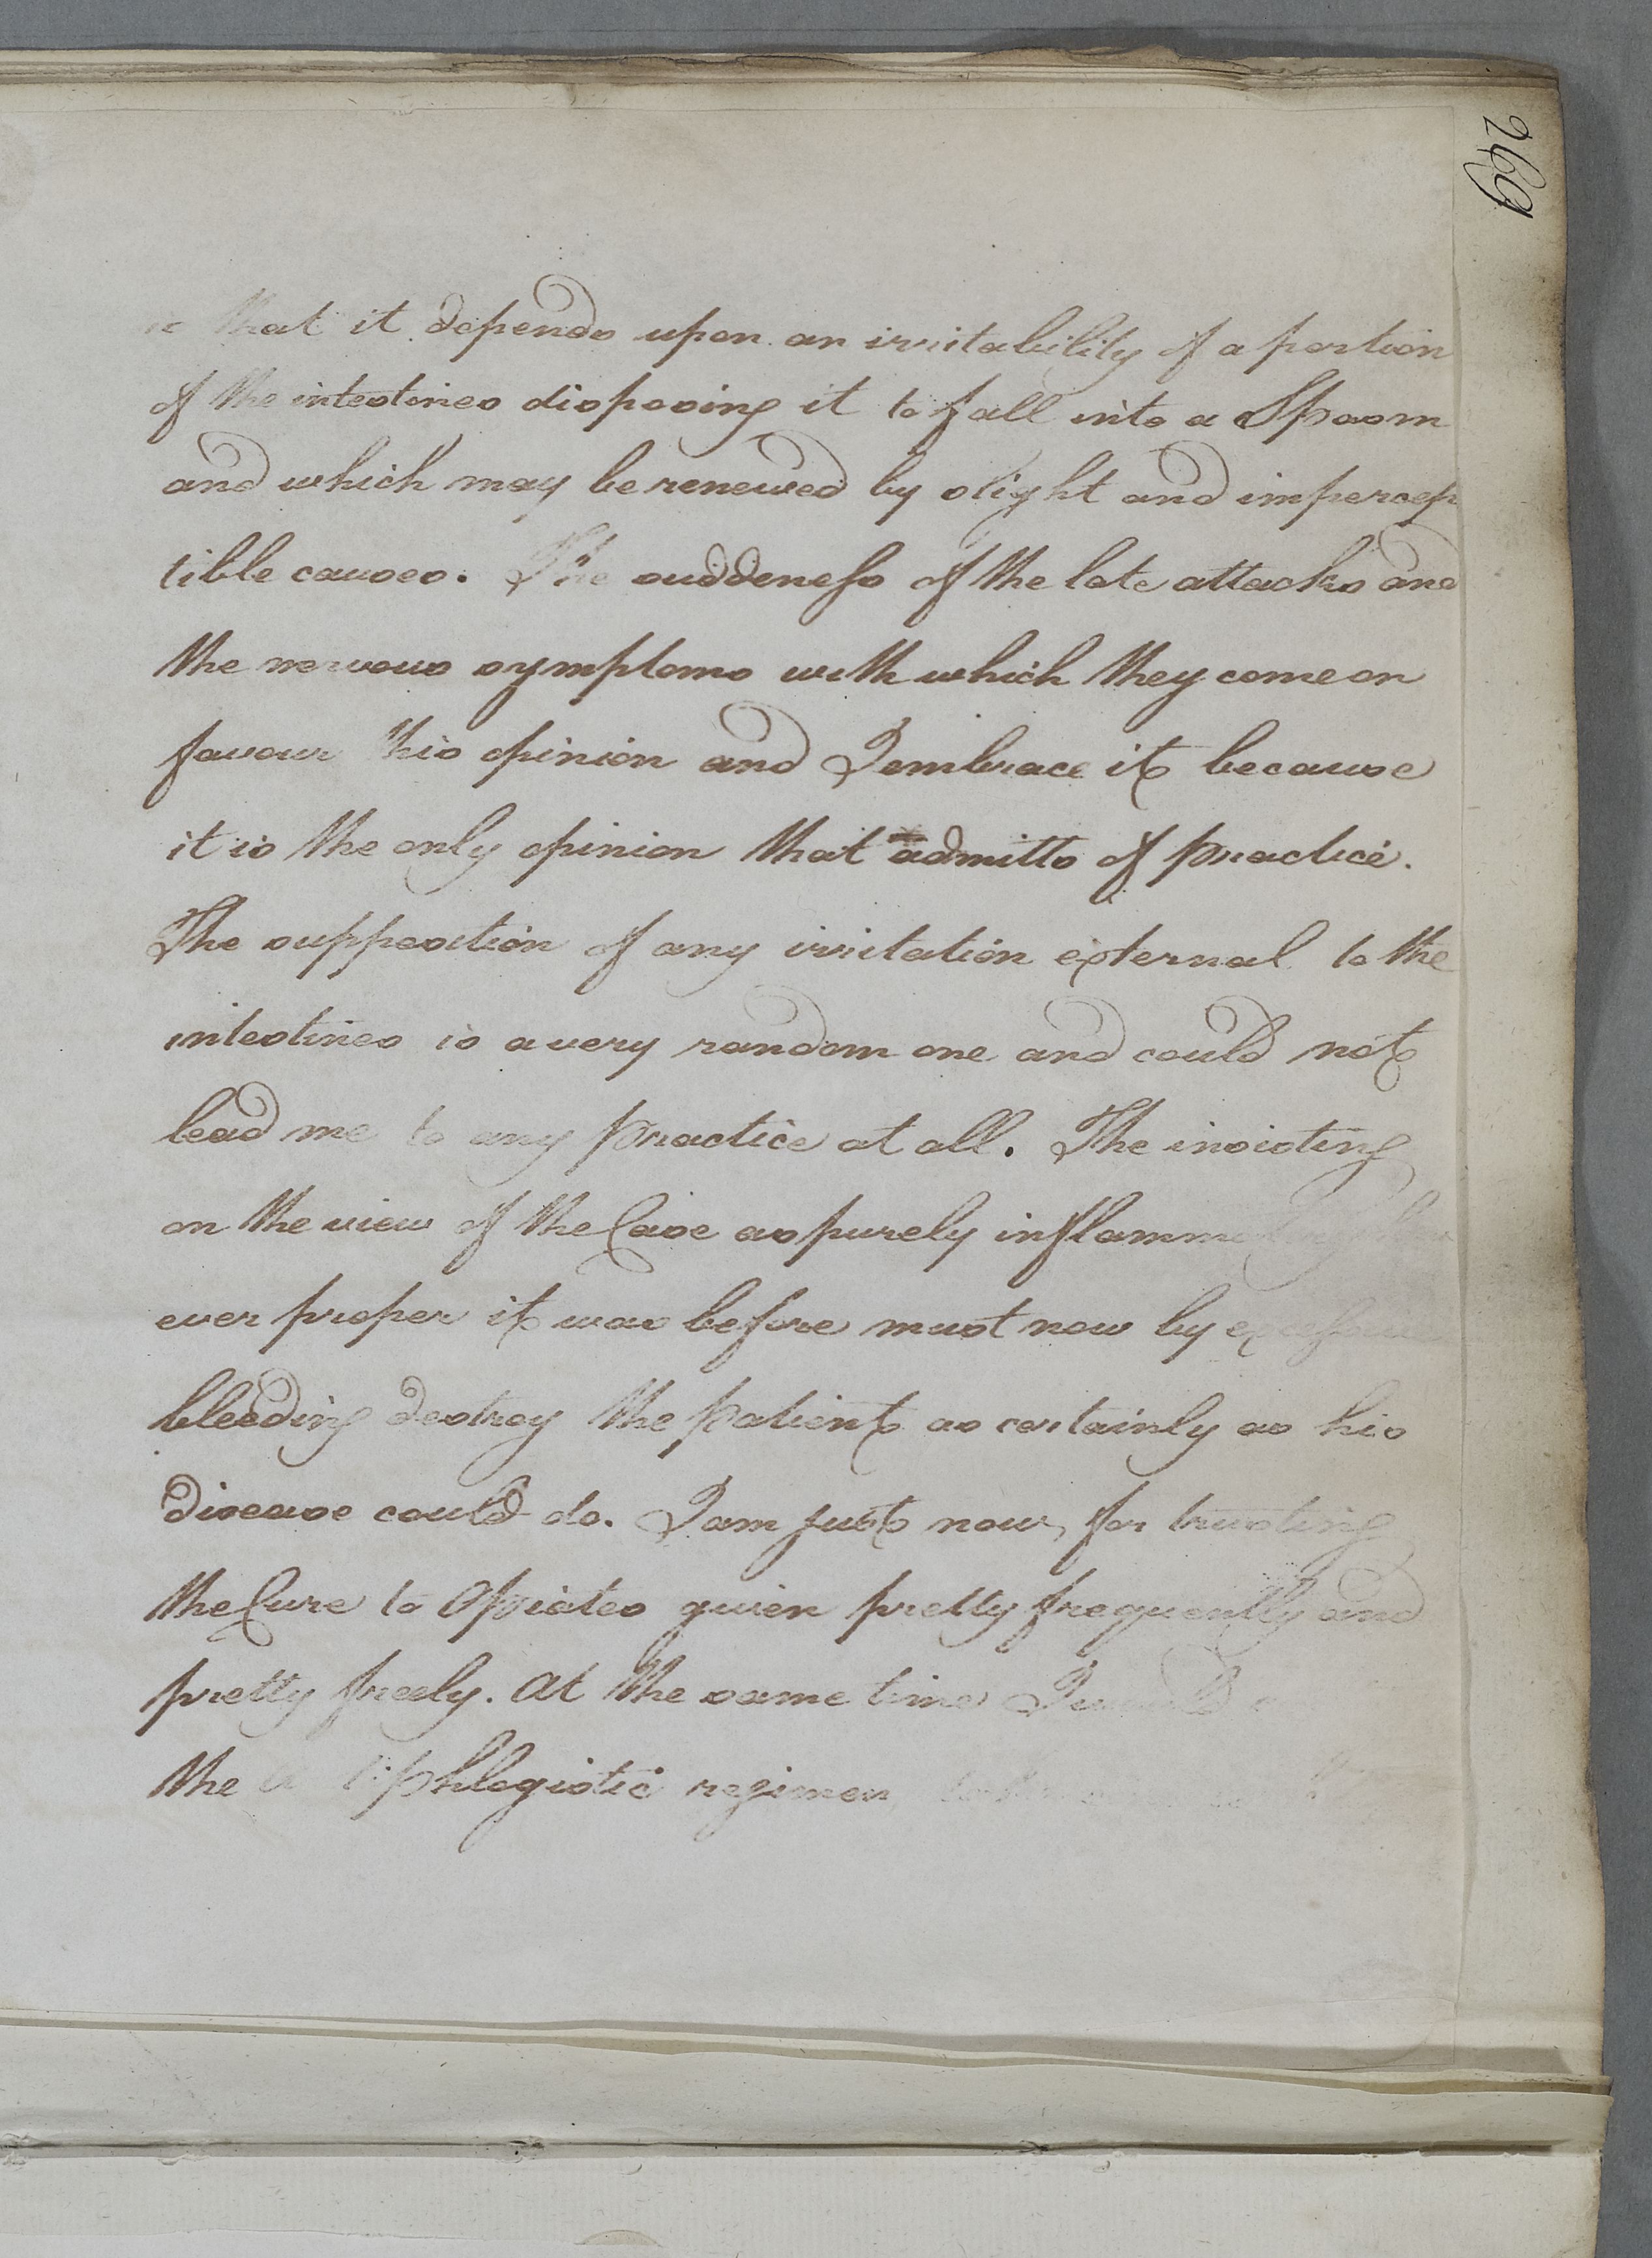 269
is that it depends upon an irritability of a portion
of the intestines disposing it to fall into a Spasm
and which may be renewed by slight and impercep
tible causes. The suddeness of the late attacks and
the nervous symptoms with which they come on
favour this opinion and I embrace it because
it is the only opinion that admitts of practice.
The supposition of any irritation external to the
intestines is a very random one and could not
lead me to any practice at all. The insisting
on the view of the Case as purely
ever proper it was before must now by
bleeding destroy the patient as certainly as his
disease could do. I am just now for trusting
the Cure to Opiates given pretty frequently and
pretty freely. At the same time I would
the regimen